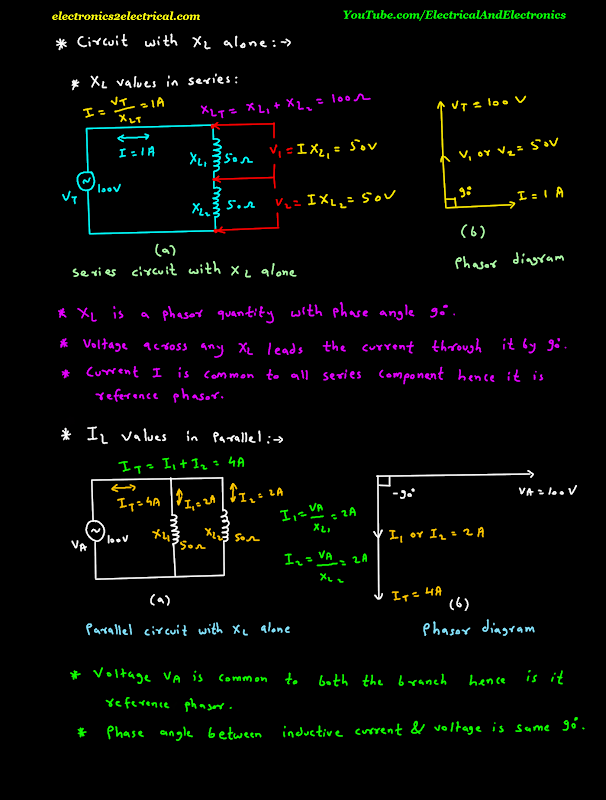 electronics2electrical.com
YouTube.com/ElectricalAndElectronics
* Circuit with XL alone :→
* XL values in series :
I = VT/XLT = 1A
XLT = XL1 + XL2 = 100Ω
I = 1A
VT
~
100V
XL1
50Ω
V1 = I XL1 = 50V
XL2
50Ω
V2 = I XL2 = 50V
(a)
Series circuit with XL alone
VT = 100 V
V1 or V2 = 50V
90°
I = 1 A
(b)
Phasor diagram
* XL is a phasor quantity with phase angle 90°.
* Voltage across any XL leads the current through it by 90°.
* Current I is common to all series component hence it is
reference phasor.
* IL values in Parallel :→
IT = I1 + I2 = 4A
IT = 4A
I1 = 2A
I2 = 2A
VA
~
100V
XL1
50Ω
XL2
50Ω
I1 = VA/XL1 = 2A
I2 = VA/XL2 = 2A
(a)
Parallel circuit with XL alone
-90°
VA = 100V
I1 or I2 = 2A
IT = 4A
(b)
Phasor diagram
* Voltage VA is common to both the branch hence is it
reference phasor.
* Phase angle between inductive current & voltage is same 90°.